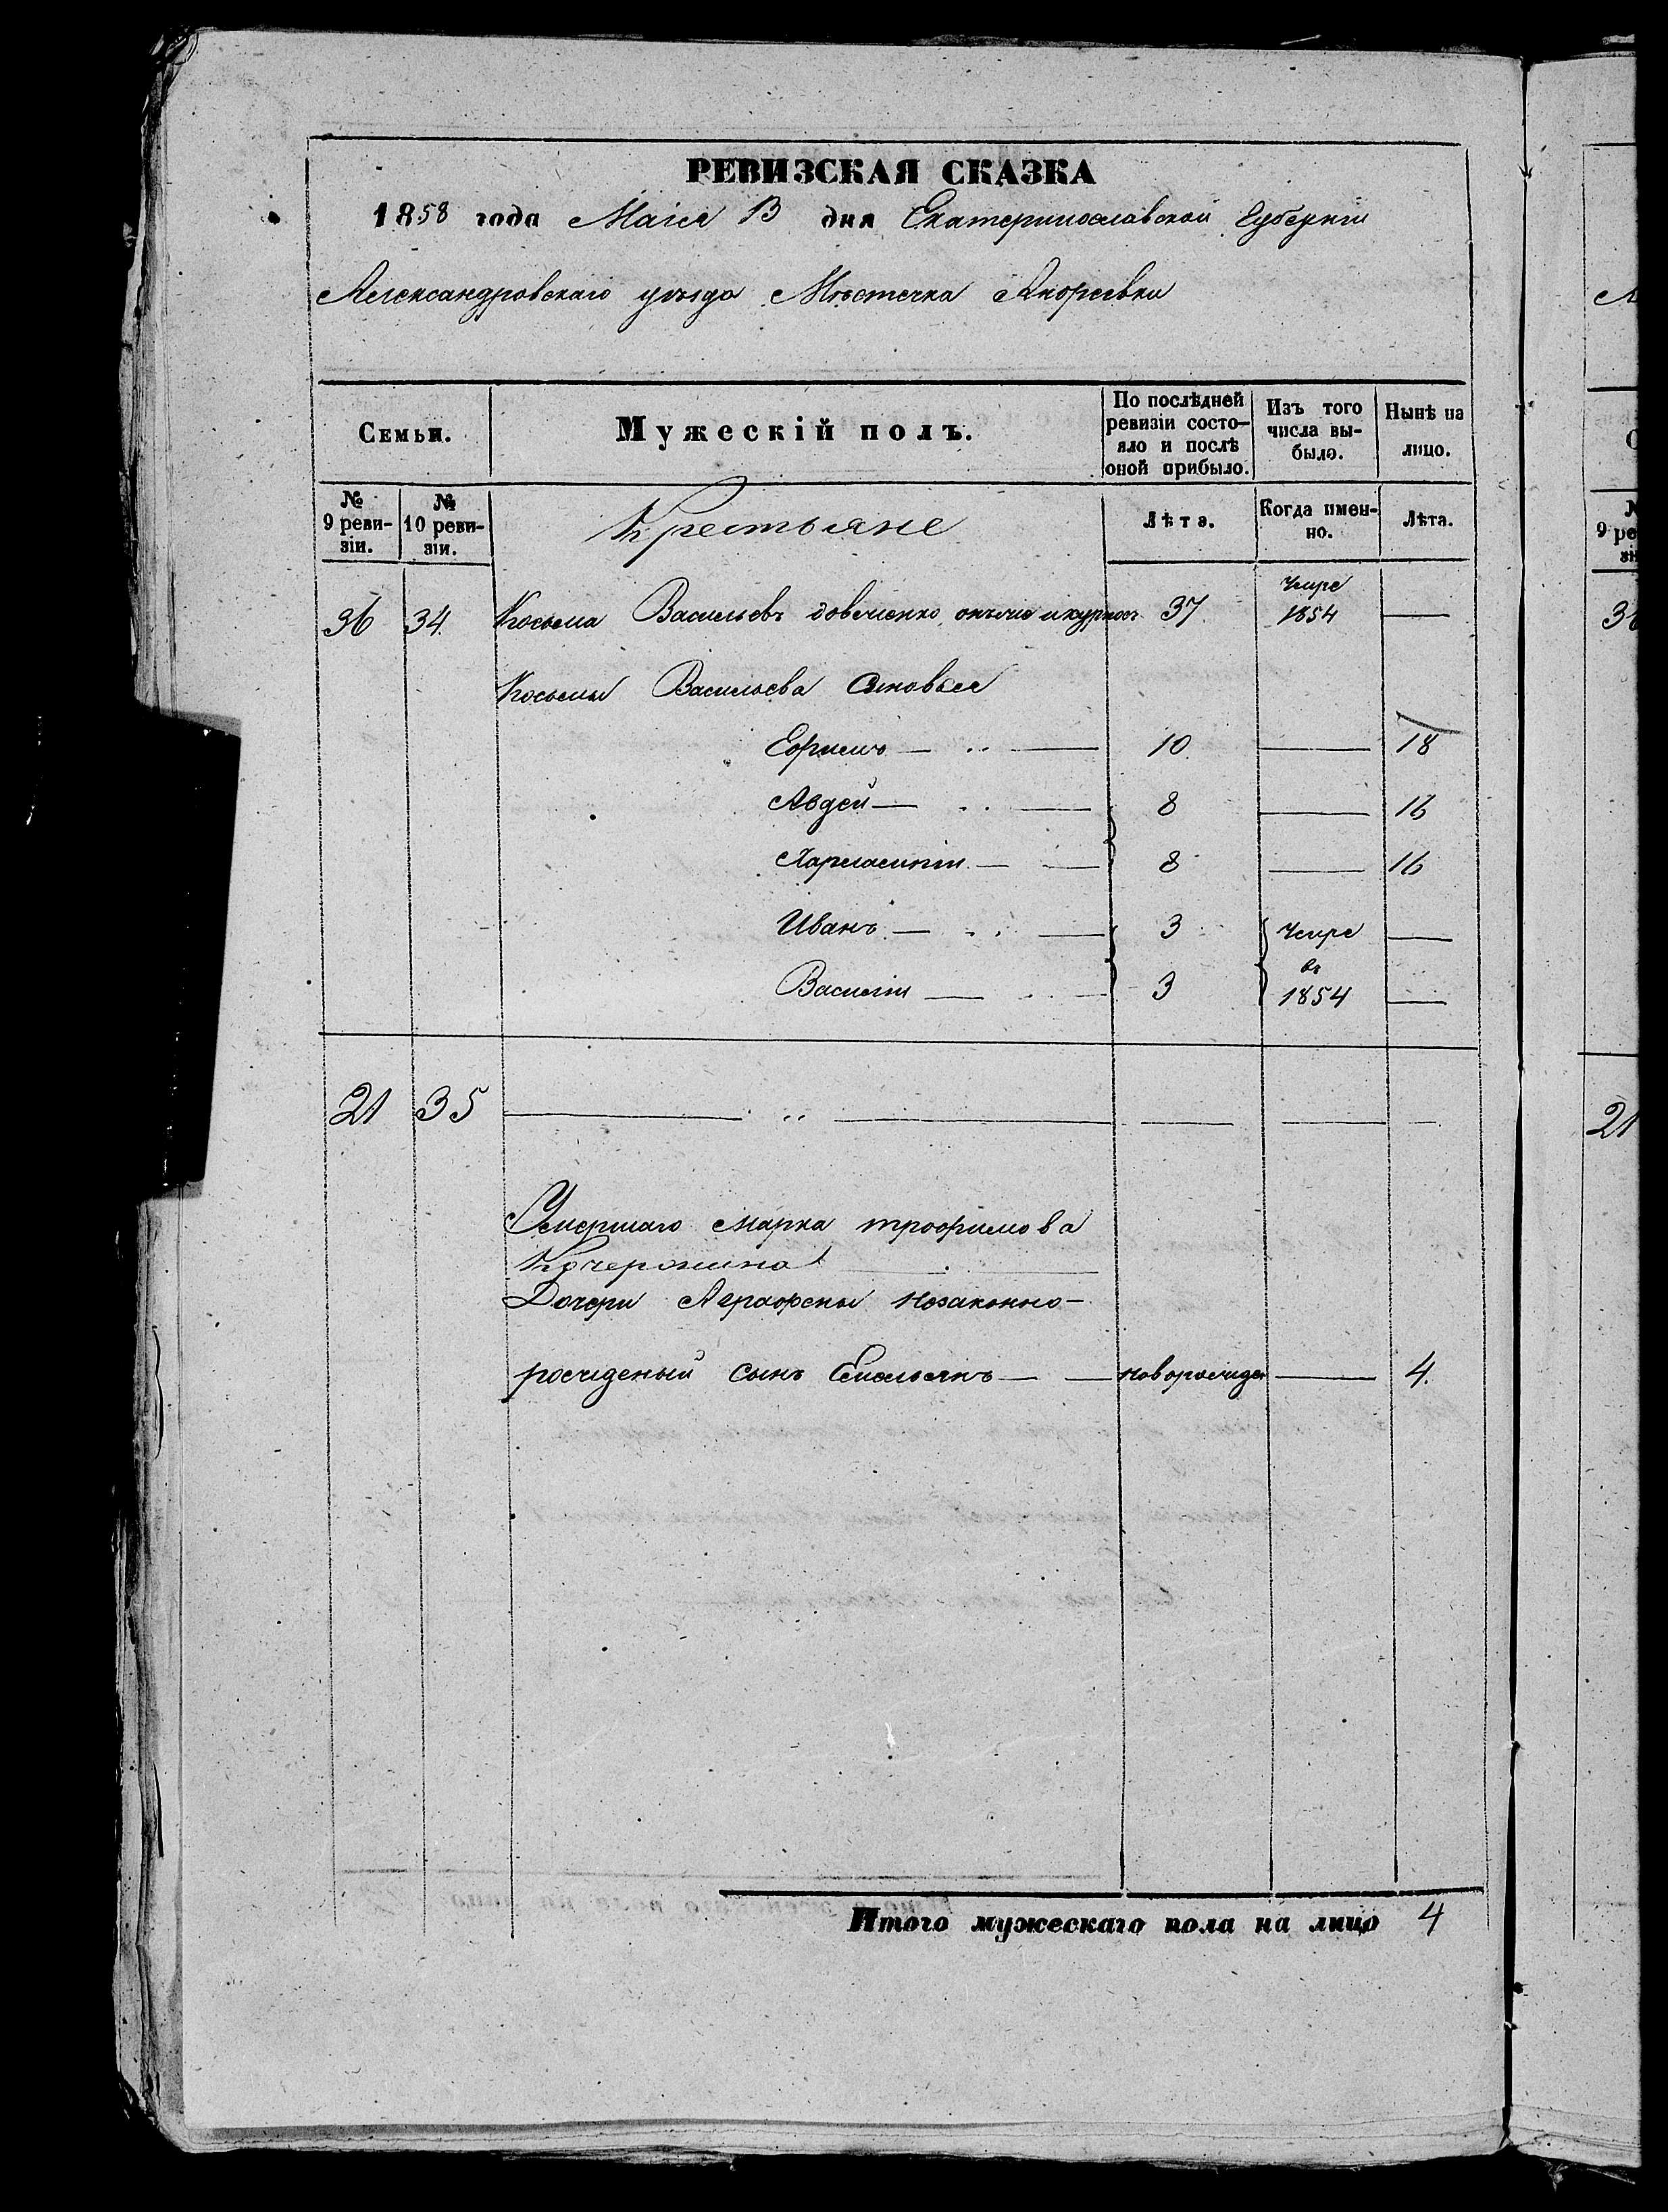 РЕВИЗСКАЯ СКАЗКА
1858 года Маія 13 дня Екатеринославской Губерніи
Александровскаго уѣзда Мѣстечка Андреевки
Семьи.
Мужескій полъ.
По послѣдней ревизіи состо-
яло и послѣ оной прибыло.
Изъ того числа вы-
было.
Нынѣ на лицо.
№ 9 реви-
зіи.
№ 10 реви-
зіи.
Крестьяне
Лѣта.
Когда имен-
но.
Лѣта.
36 34. Косьма Васильевъ 37. умре 1854 —
Косьмы Васильева сыновья
Ефримъ — 10. — 18
Авдей — 8 — 16
Харлампій — 8 — 16
Иванъ — 3 умре —
Василій — 3 въ 1854 —
21 35 — „ — — — —
Умершаго марка трофимова
Дочери незаконно-
рожденый сынъ Емельянъ — новорожден — 4.
Итого мужескаго пола на лицо 4
9 ре
21